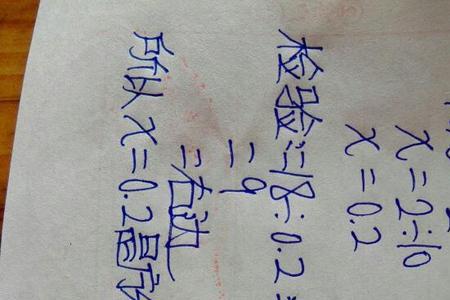 x=2÷10
x=0.2
检验:=18÷0.2=
=9
=右边
所以x=0.2是方